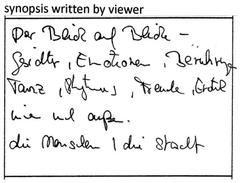 synopsis written by viewer
Der Blick auf Blicke –
Gesichter, Emotionen, Berührungen
Tanz, Rhythmus, Freude, Erotik
innen und außen.
die Menschen / die Stadt